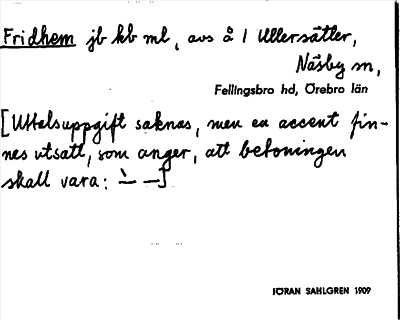 Fridhem jb kb ml, avs å 1 Ullersätter,
Näsby sn,
Fellingsbro hd, Örebro län
[Uttalsuppgift saknas, men en accent fin-
nes utsatt, som anger, att betoningen
skall vara: –̀ –]
JÖRAN SAHLGREN 1909